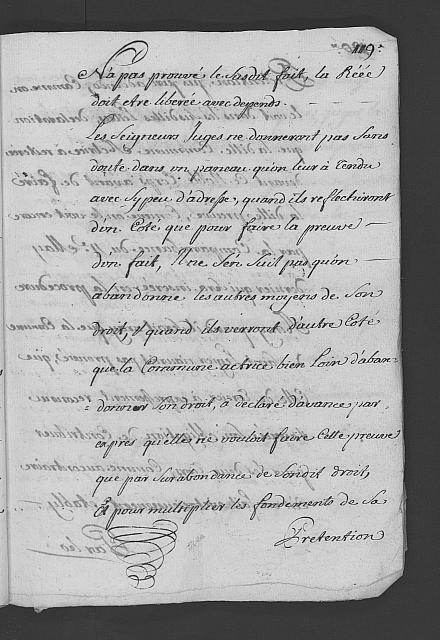 119.
N'a pas prouvé le susdit fait, la Réée
doit etre liberée avec depends. —
Les Seigneurs Juges ne donneront pas sans
doute dans un paneau qu'on leur à Tendu
avec sy peu d'adresse, quand ils reflechiront
d'un Coté que pour faire la preuve —
d'un fait, Il ne s'en suit pas qu'on —
abandonne les autres moyens de son
droit, & quand ils verront d'autre Coté
que la Commune actrice bien loin d'aban=
=donner son droit, a declaré d'avance par
exprés qu'elle ne vouloit faire Cette preuve
que par surabondance de sondit droit,
Et pour multiplier les fondements de sa
Pretention